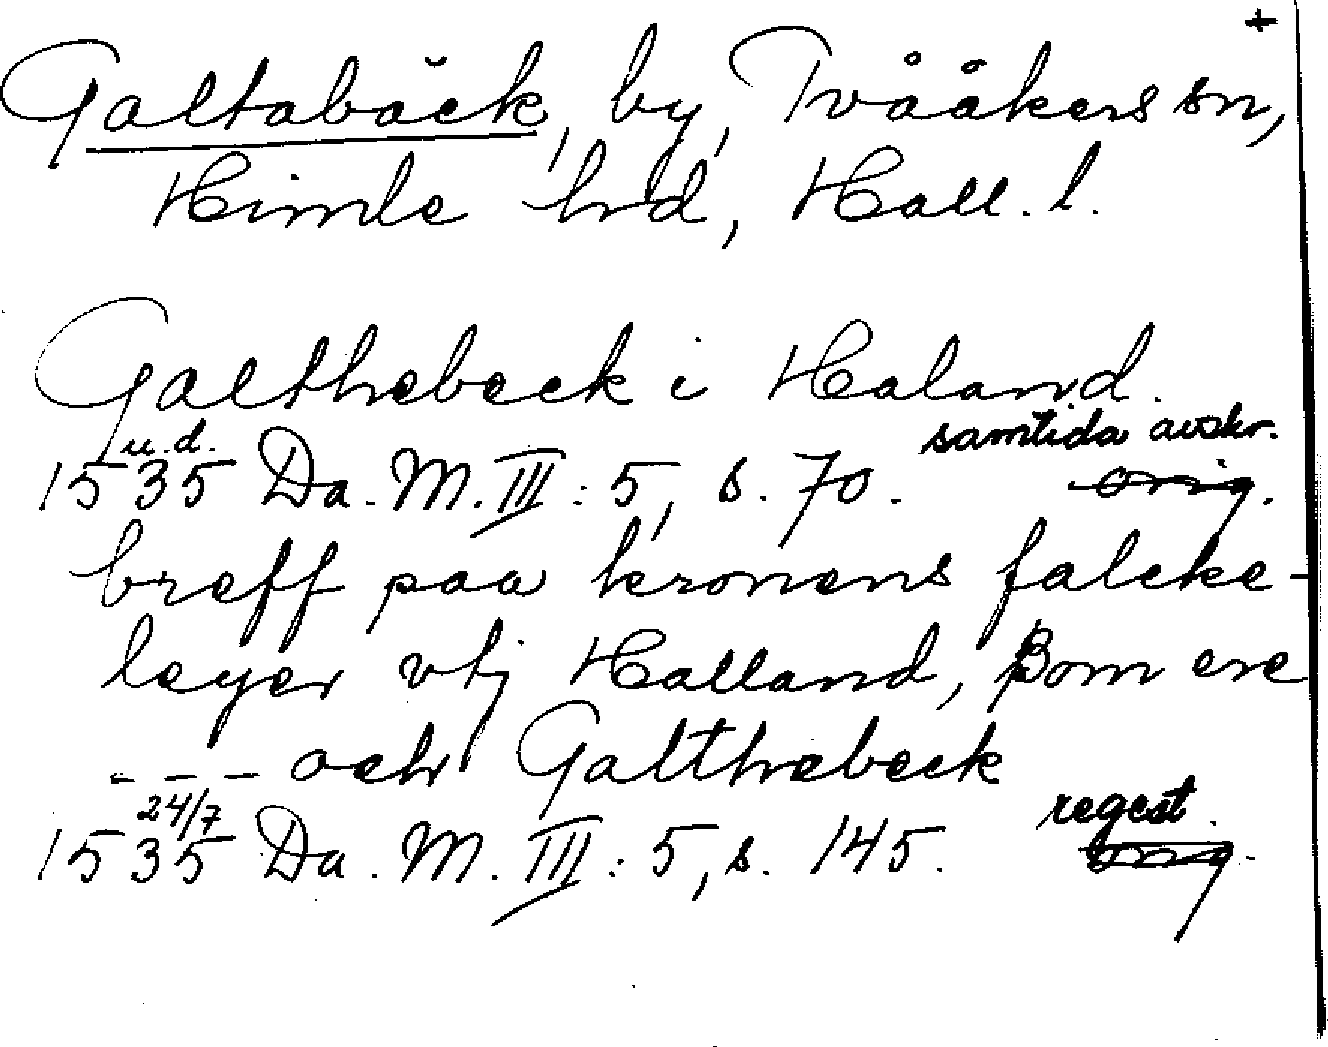 +
Galtabäck, by, Tvååkers sn,
Himle hd, Hall. l.
Galthebeck i Haland.
u.d. samtida avskr.
1535 Da. M. III: 5, s. 70. orig.
breff paa kronens falcke-
leyer vtj Halland, ßom ere
- - - och Galthebeck
24/7 regest.
1535 Da. M. III: 5, s. 145. orig.